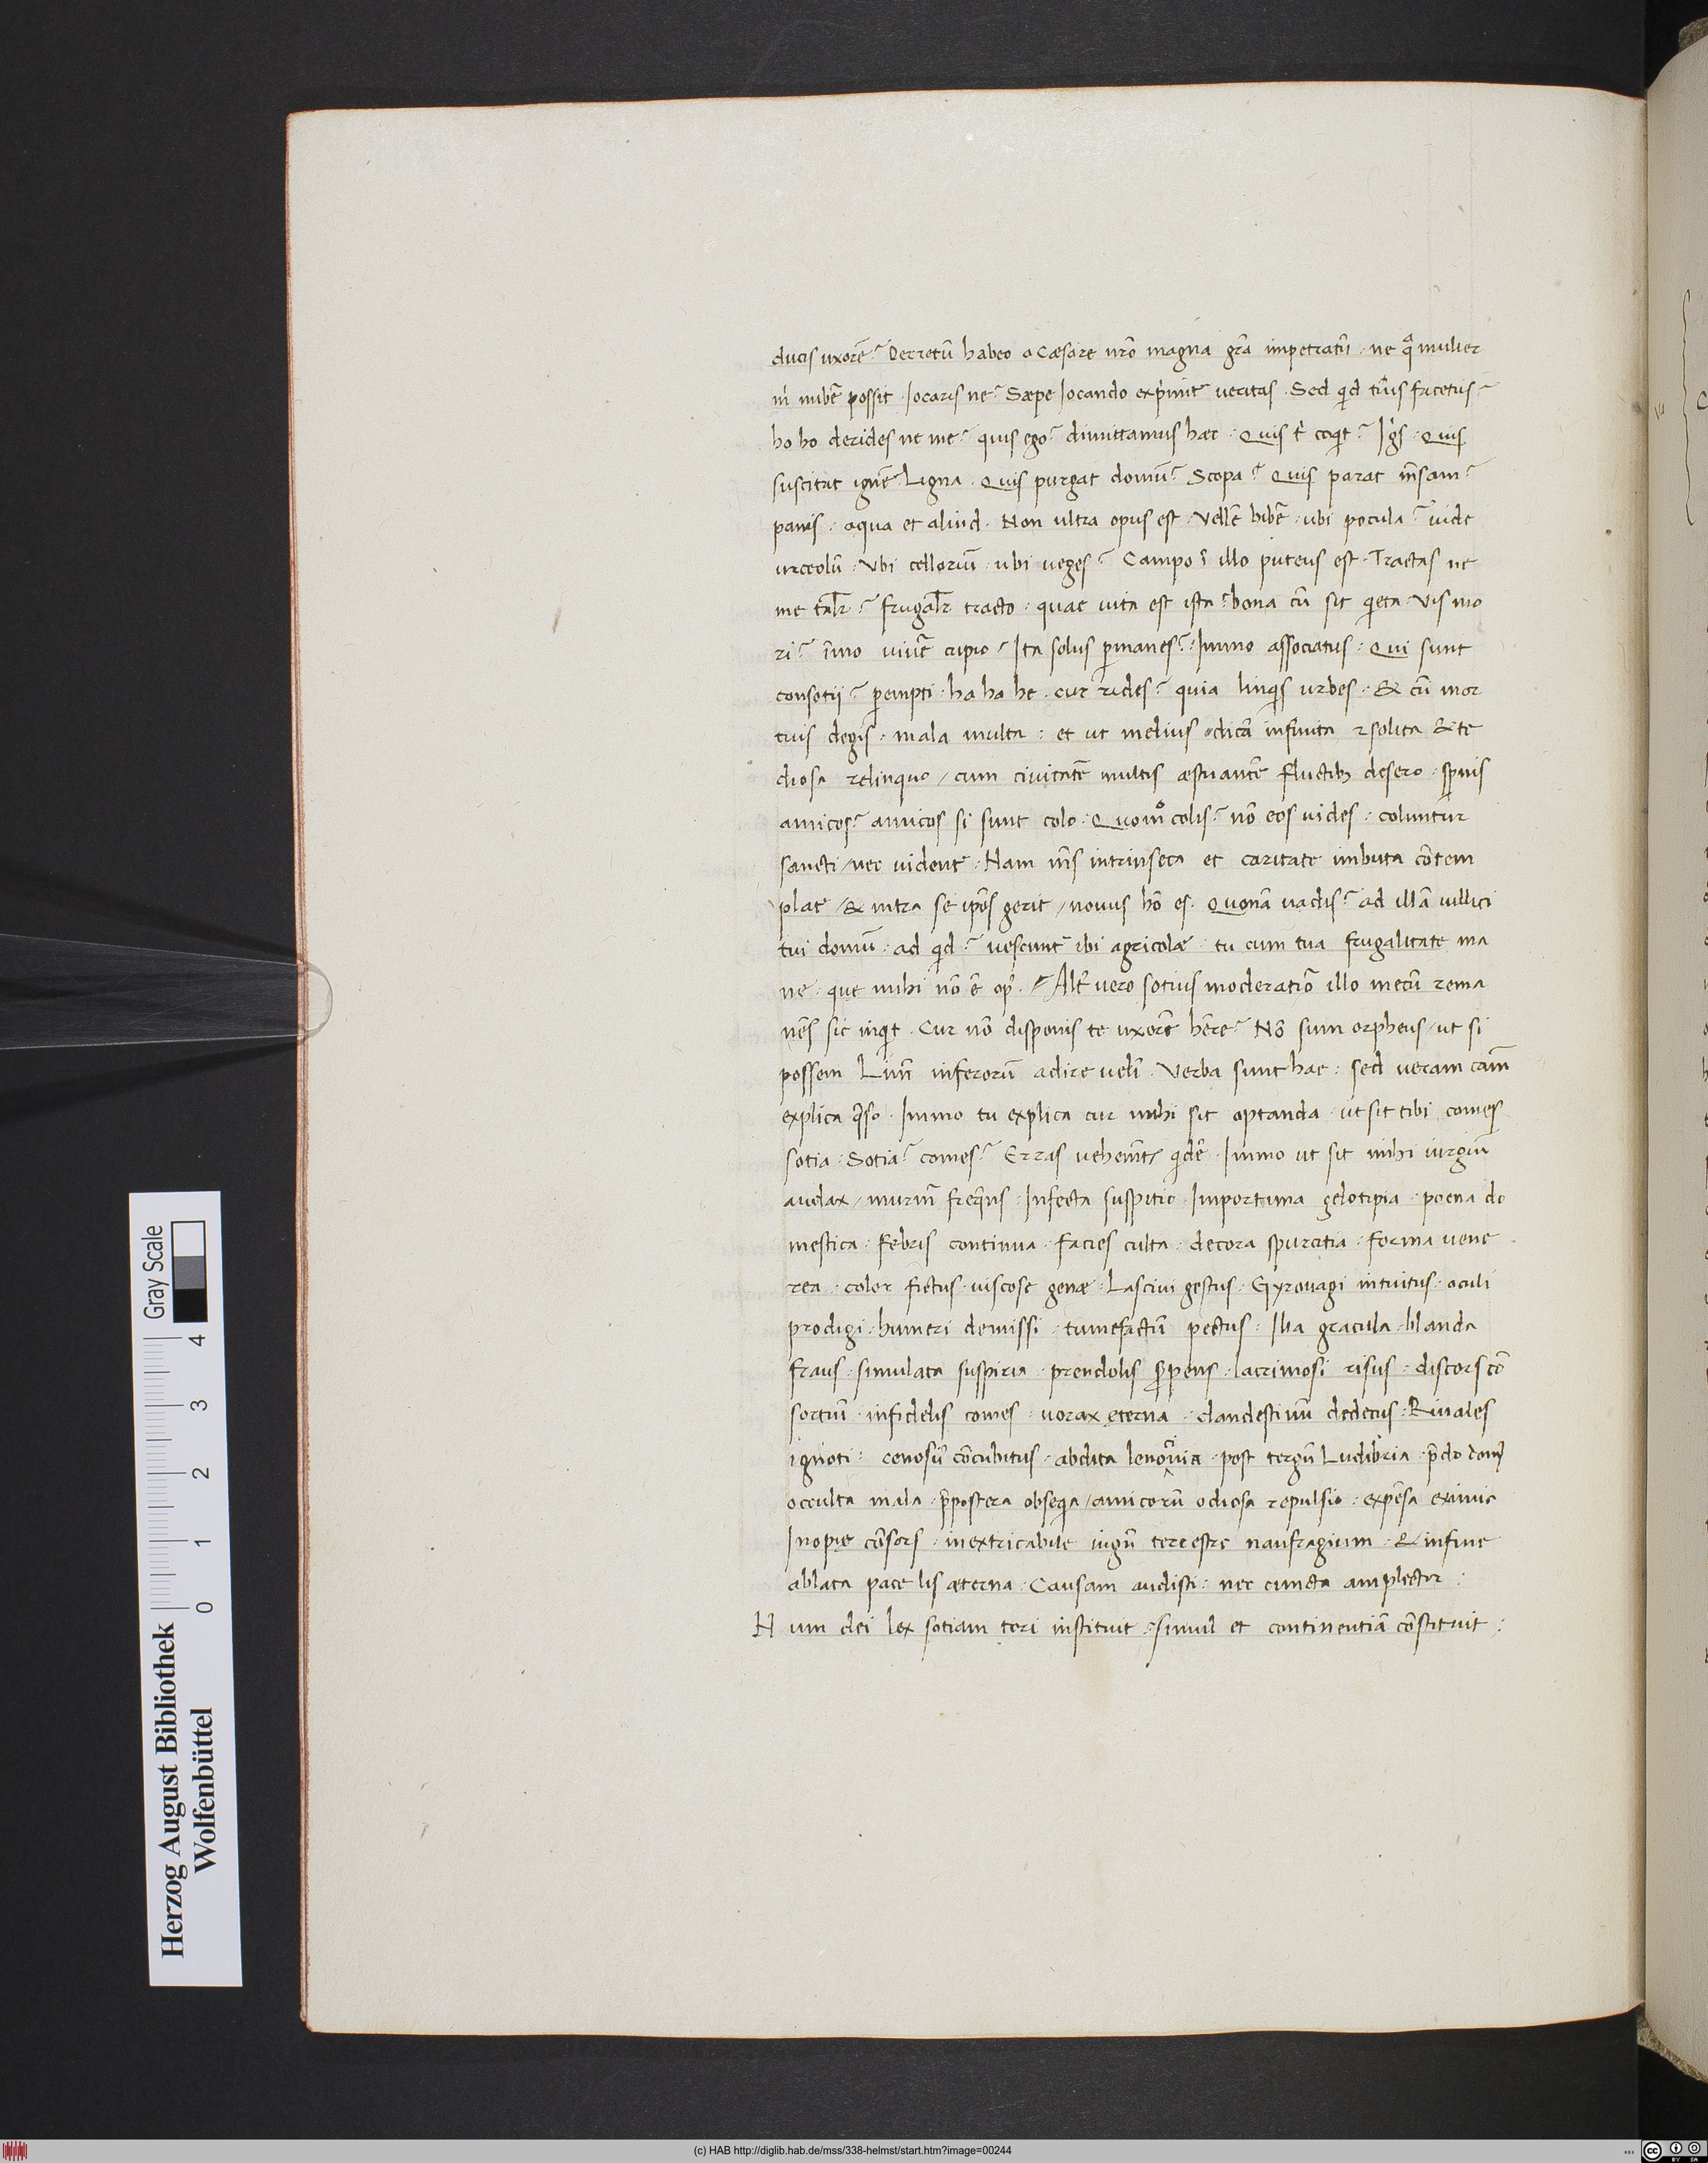 ducis uxorē? Decretū habeo a Cæsare nrō magna grā impetratū · ne qᵃ mulier
m̄ nubē possit · Jocaris ne? Sæpe Jocando exprimit᷑ ueritas · Sed qid
ho ho derides ne me? quis ego? dimittamus hæc · Quis coqit? Ignis · Quis
suscitat ignē? Ligna · Quis purgat domū? Scopa? Quis parat mēsam?
panis · aqua et aliud · Non ultra opus est · Vellē bibē · ubi pocula? uide
urceolū · Vbi cellariū · ubi ueges? Campo ī illo puteus est · Tractas ne
me talr̄? frugalr̄ tracto · quae uita est ista? bona cū sit qieta · Vis mo
ri? īmo uiuē cupio / Ita solus pmanes? Immo associatus · Qui sunt
consotii? pempti · ha ha he · cur rides? quia linqis urbes · & cū mor
tuis degis · mala multa : et ut melius dicā infinita & te
diosa relinquo / cum ciuitatē multis æstuantē fluctibꝫ desero · spnis
amicos? amicos si sunt colo · Quomᵒ colis? nō eos uides · coluntur
sancti / nec uident᷑ · Nam mēs intrinseca et caritate imbuta cōtem
plat᷑ / & intra se ipōs gerit / nouus hō es · Quonā uadis? ad illā uillici
tui domū · ad qid? uescunt᷑ ibi agricolæ · tu cum tua frugalitate ma
ne · que mihi nō ē op᷒ · Alt᷑ uero sotius moderatiō illo mecū rema
nēs sic inqit · Cur nō disponis te uxorē hēre? Nō sum orpheus / ut si
possem Limē inferorū adire uelī · Verba sunt hæc · sed ueram cām
explica qso · Immo tu explica cur mihi sit optanda · ut sit tibi comes
sotia · Sotia? comes? Erras uehemēt qidē · Immo ut sit mihi iurgiū
audax / murm̄ freqēns · Infecta suspitio · Importuna gelotipia · poena do
mestica · Febris continua · facies culta · decora spurcitia · forma uene
rea · color fictus · uiscose genæ · Lasciui gestus · Gyrouagi intuitus · oculi
prodigi · humeri demissi · tumefactū pectus · Ilia gracula · blanda
fraus · simulata suspiria · lacrimosi risus · discors cō
sortiū · infidelis comes · uorax eterna · clandestinū dedecus · Riuales
ignoti · cenosū cōcubitus · abdita · post tergū Ludibria · pdo
occulta mala · ppostera obseqia / amicorū odiosa repulsio · expēsa eximie
Inopie cōsors · inextricabile iugū terrestre naufragium · & infine
ablata pace lis æterna · Causam audisti · nec cuncta amplector :
N um dei lex sotiam tori instituit · simul et continentiā cōstituit :
Gray Scale
0 1 2 3 4
Herzog August Bibliothek
Wolfenbüttel
(c) HAB http://diglib.hab.de/mss/338-helmst/start.htm?image=00244